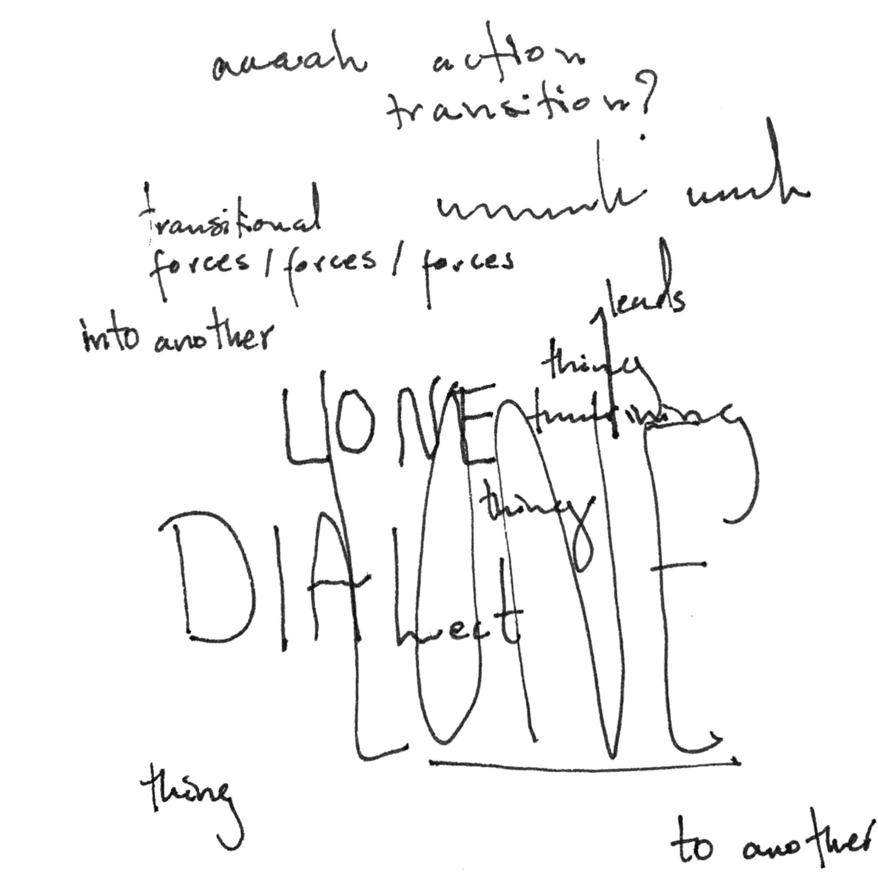 auaah action
transition?
transitional
forces / forces / forces
leads
into another
thing
LONE
thing
DIALect
LONE
thing
to another